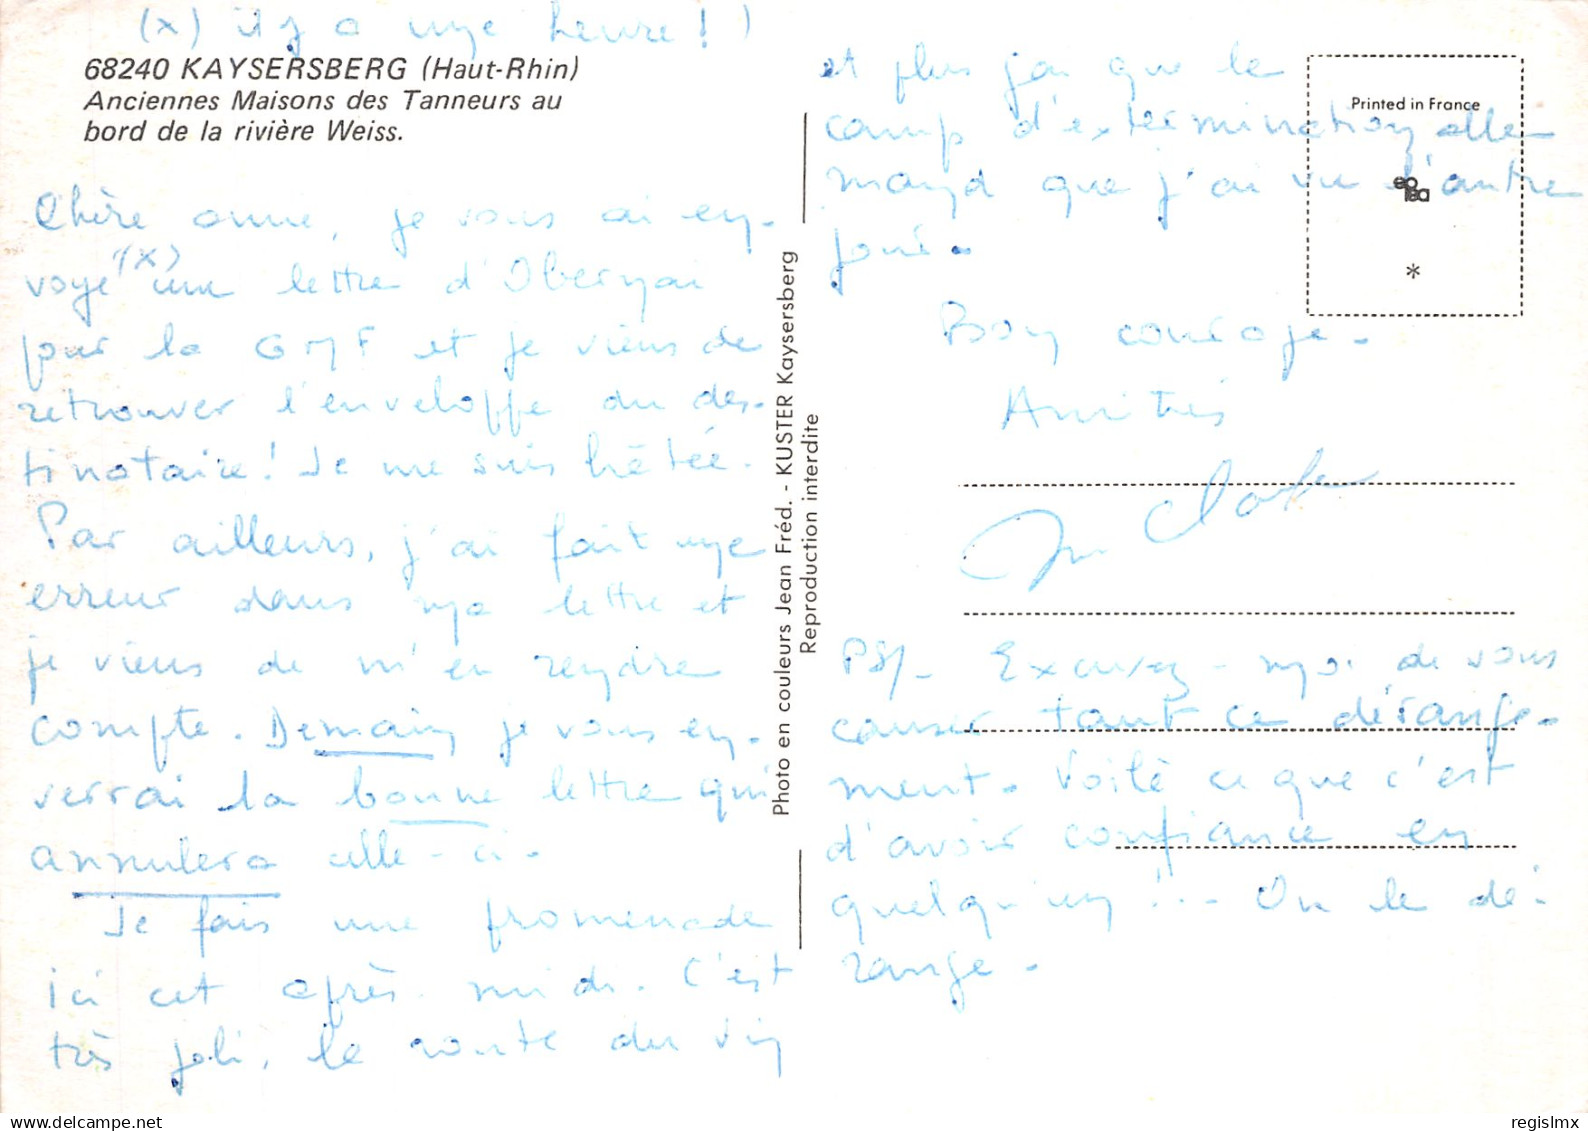 (x) il y a une heure !)
68240 KAYSERSBERG (Haut-Rhin)
Anciennes Maisons des Tanneurs au
bord de la rivière Weiss.
Chère anne, je vous ai en-
voyé (x) une lettre d'Obernai
par la GMF et je viens de
retrouver l'enveloppe du des-
tinataire! Je me suis hâtée.
Par ailleurs, j'ai fait une
erreur dans ma lettre et
je viens de m'en rendre
compte. Demain je vous en-
verrai la bonne lettre qui
annulera celle-ci.
Je fais une promenade
ici cet après-midi. C'est
très joli, la route du vin
Photo en couleurs Jean Fréd. - KUSTER Kaysersberg
Reproduction interdite
et plus gai que le
camp d'extermination alle-
mand que j'ai vu l'autre
jour.
Printed in France
*
Bon courage.
Amitiés
PS/- Excusez-moi de vous
causer tant de dérange-
ment. Voilà ce que c'est
d'avoir confiance en
quelqu'un !... On le dé-
range.
regislmx